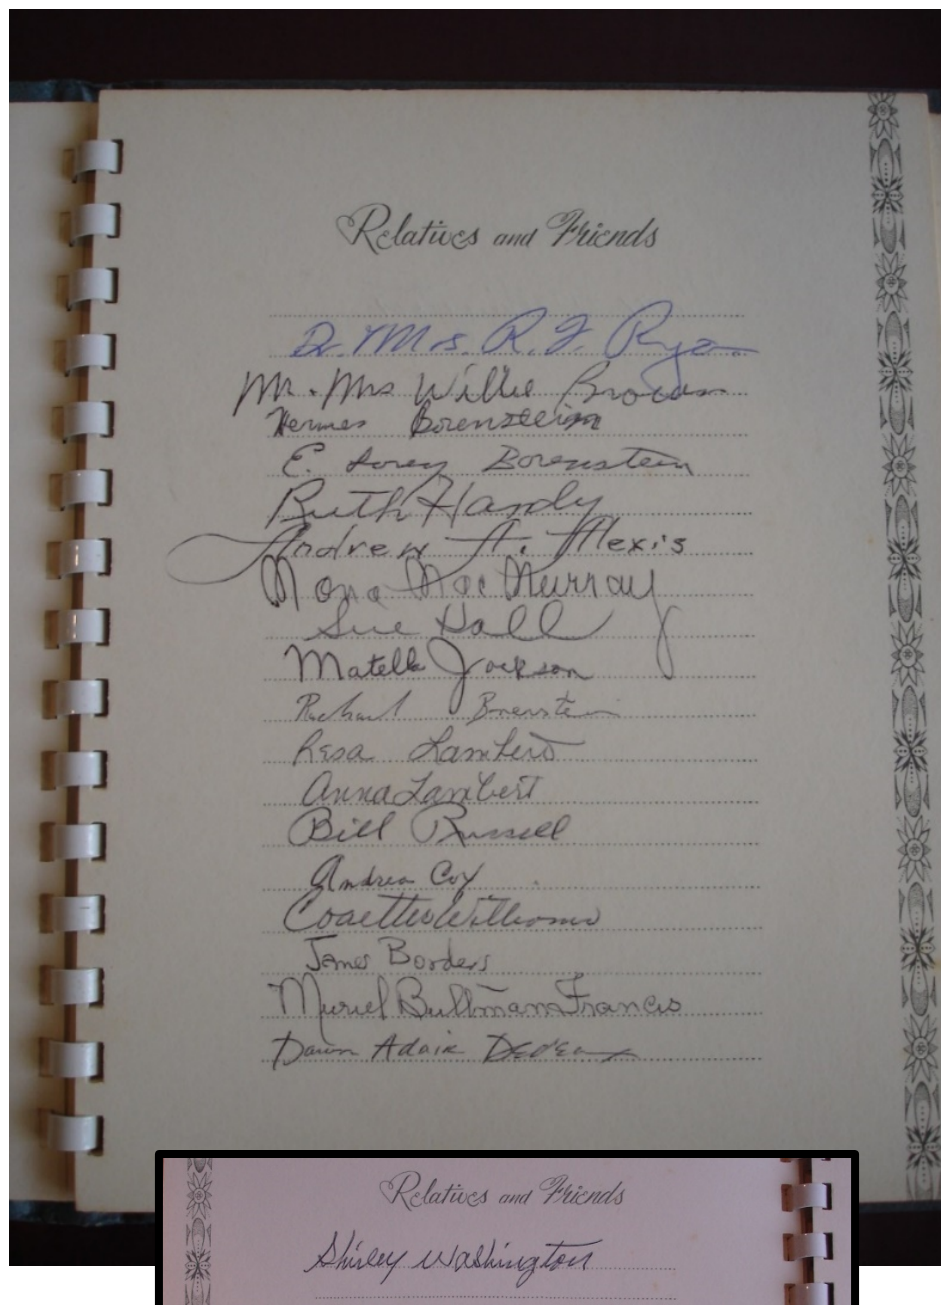 Relatives and Friends
Dr. Mrs. R. J. Ryan
Mr. Mrs Willie Brown
Hermes Borenstein
E. Lorey Borenstein
Ruth Hardy
Andrew A. Alexis
Nona MacMurray
Sue Hall
Matella Jackson
Borenstein
Resa Lambert
Anna Lambert
Bill Russell
Andrea Cox
Williams
James Borders
Muriel Bultman Francis
Dawn Adair Dedeaux
Relatives and Friends
Shirley Washington